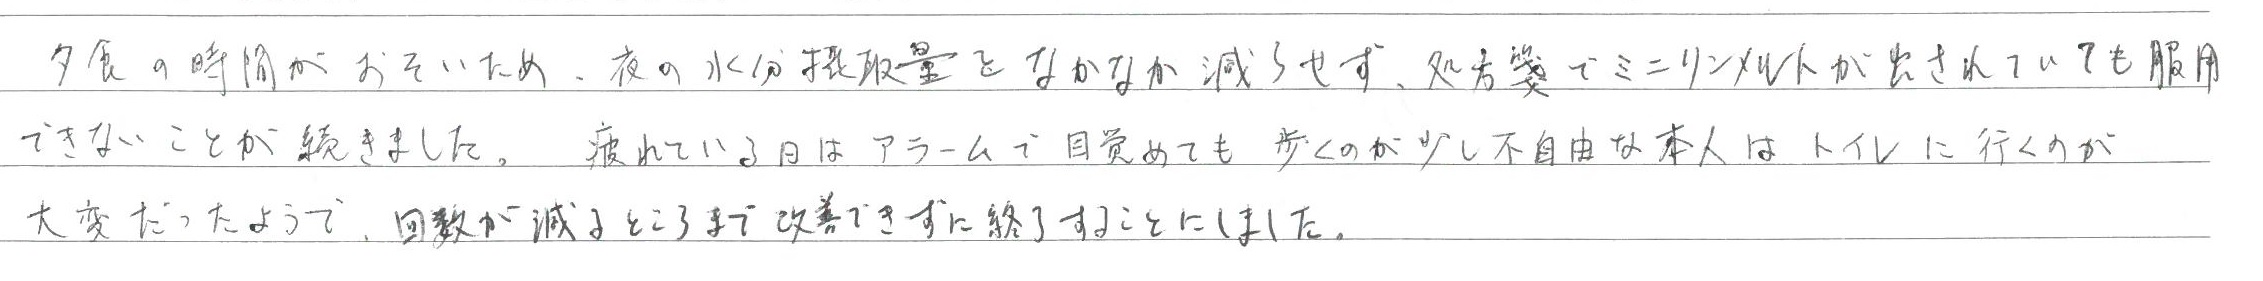 夕食の時間がおそいため、夜の水分摂取量をなかなか減らせず、処方箋でミニリンメルトが出されていても服用
できないことが続きました。 疲れている日はアラームで目覚めても歩くのが少し不自由な本人はトイレに行くのが
大変だったようで、回数が減るところまで改善できずに終了することにしました。